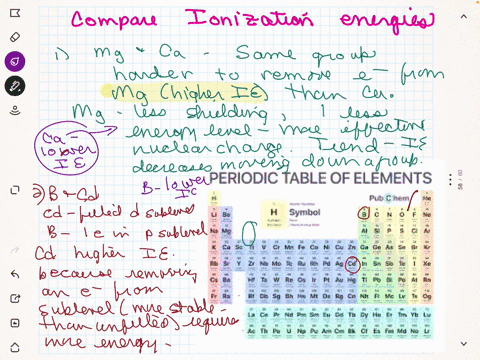 Compare Ionization energies
1) Mg & Ca - Same group
harder to remove e- from
Mg (higher IE) than Ca.
Mg - less shielding, 1 less
energy level - more effective
nuclear charge. Trend - IE
decreases moving down a group.
Ca -
lower
IE
B - lower
IE
2) B & Cd
Cd - filled d sublevel
B - 1e in p sublevel
Cd higher IE.
because removing
an e- from
sublevel (more stable -
than unfilled) requires
more energy -
PERIODIC TABLE OF ELEMENTS
PubChem
H
Symbol
58 / 60
H He
Li Be B C N O F Ne
Na Mg Al Si P S Cl Ar
K Ca Sc Ti V Cr Mn Fe Co Ni Cu Zn Ga Ge As Se Br Kr
Rb Sr Y Zr Nb Mo Tc Ru Rh Pd Ag Cd In Sn Sb Te I Xe
Cs Ba Hf Ta W Re Os Ir Pt Au Hg Tl Pb Bi Po At Rn
Fr Ra Rf Db Sg Bh Hs Mt Ds Rg Cn Nh Fl Mc Lv Ts Og
La Ce Pr Nd Pm Sm Eu Gd Tb Dy Ho Er Tm Yb Lu
Ac Th Pa U Np Pu Am Cm Bk Cf Es Fm Md No Lr